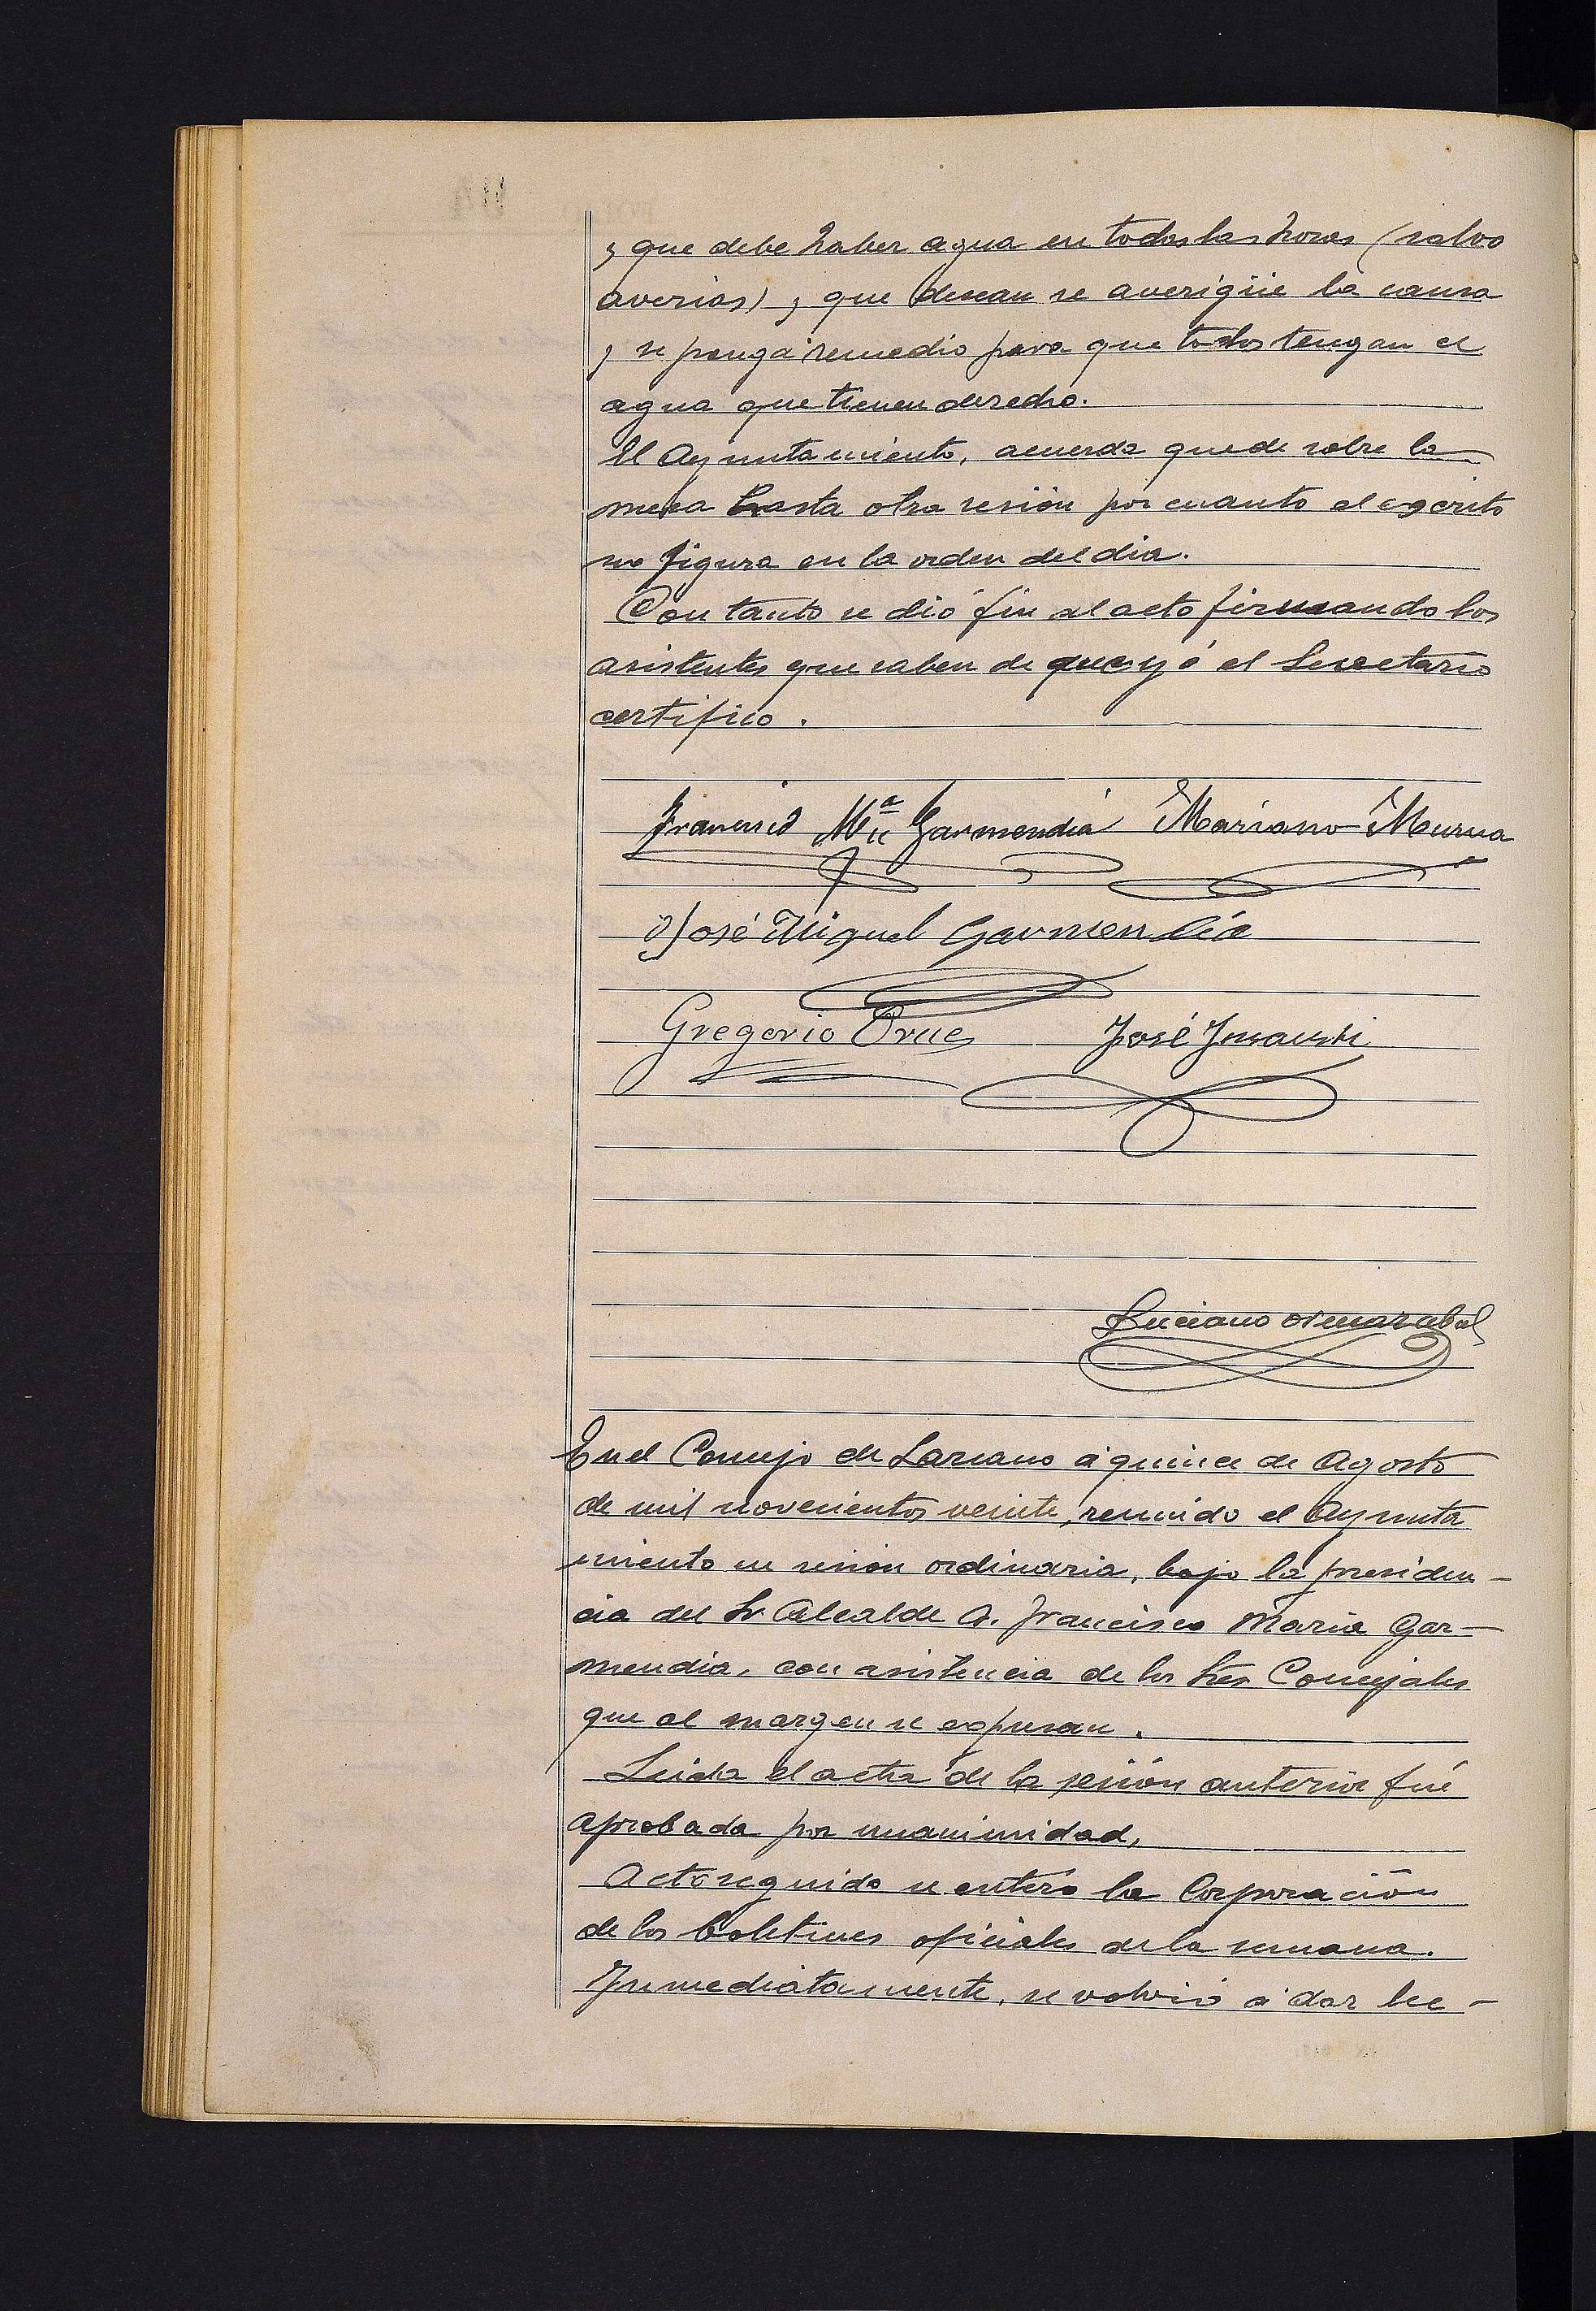 y que debe haber agua en todas las horas (salvo
averias) y que desean se averigüe la causa
y se ponga remedio para que todos tengan el
agua que tienen derecho.
El Ayuntamiento, acuerda quede sobre la
mesa hasta otra sesión por cuanto el escrito
no figura en la orden del dia.
Con tanto se dió fin al acto firmando los
asistentes que saben de que yó el Secretario
certifico.
Francisco Mª Garmendia Mariano Murua
José Miguel Garmendia
Gregorio Orue José Insausti
Luciano
En el Concejo de Lazcano á quince de Agosto
de mil novecientos veinte, reunido el Ayunta
miento en sesion ordinaria, bajo la presiden-
cia del Sr. Alcalde D. Francisco Maria Gar-
mendia, con asistencia de los Sres Concejales
que al margen se expresan.
Leida el acta de la sesión anterior fué
aprobada por unanimidad,
Acto seguido se enteró la Corporación
de los boletines oficiales de la semana.
Inmediatamente, se volvió á dar lec-